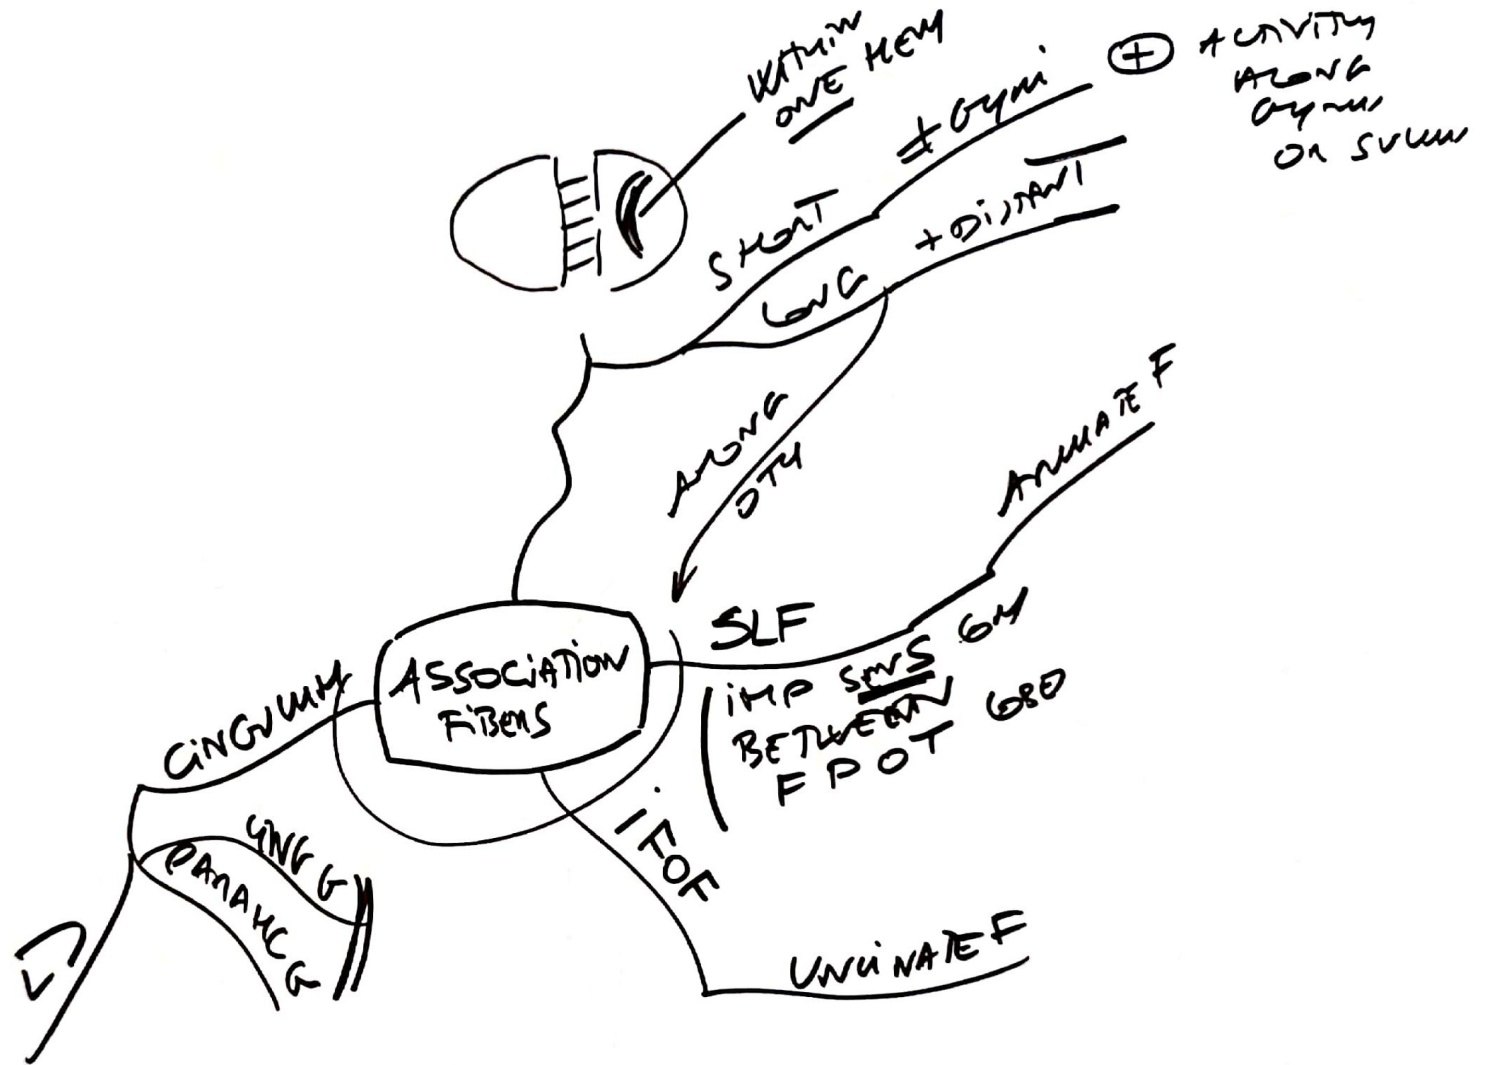 WITHIN
ONE HEM
± Gyri
⊕ ACTIVITY
ALONG
Gyrus
OR SULCUS
SHORT
LONG
+ DISTANT
ALONG
ARCUATE F
SLF
IMP
BETWEEN
F P O T
ASSOCIATION
FIBERS
CINGULUM
CING G
PARAHC G
IFOF
UNCINATE F